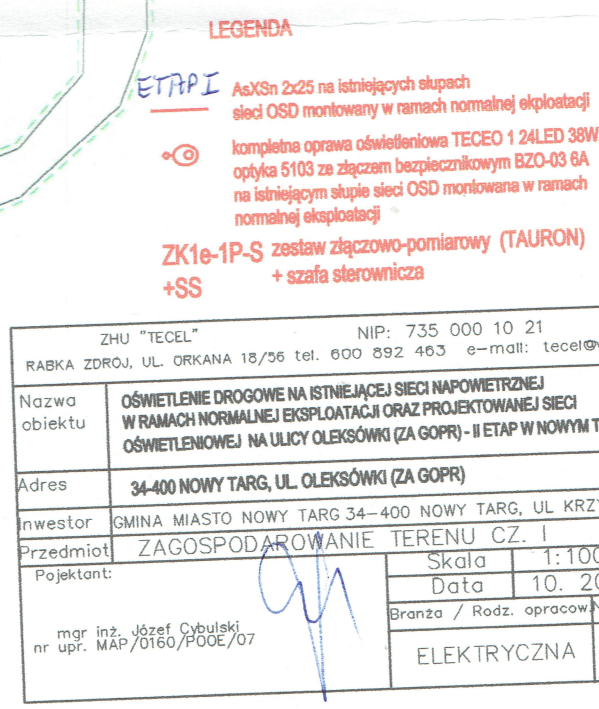 LEGENDA
ETAP I
AsXSn 2x25 na istniejących słupach
sieci OSD montowany w ramach normalnej ekploatacji
kompletna oprawa oświetleniowa TECEO 1 24LED 38W
optyka 5103 ze złączem bezpiecznikowym BZO-03 6A
na istniejącym słupie sieci OSD montowana w ramach
normalnej eksploatacji
ZK1e-1P-S zestaw złączowo-pomiarowy (TAURON)
+SS + szafa sterownicza
ZHU "TECEL" NIP: 735 000 10 21
RABKA ZDRÓJ, UL. ORKANA 18/56 tel. 600 892 463 e-mail: tecel@
Nazwa obiektu
OŚWIETLENIE DROGOWE NA ISTNIEJĄCEJ SIECI NAPOWIETRZNEJ
W RAMACH NORMALNEJ EKSPLOATACJI ORAZ PROJEKTOWANEJ SIECI
OŚWIETLENIOWEJ NA ULICY OLEKSÓWKI (ZA GOPR) - II ETAP W NOWYM T
Adres 34-400 NOWY TARG, UL. OLEKSÓWKI (ZA GOPR)
Inwestor GMINA MIASTO NOWY TARG 34-400 NOWY TARG, UL KRZY
Przedmiot ZAGOSPODAROWANIE TERENU CZ. I
Pojektant: Skala 1:100
Data 10. 20
Branża / Rodz. opracow.
mgr inż. Józef Cybulski
nr upr. MAP/0160/POOE/07
ELEKTRYCZNA